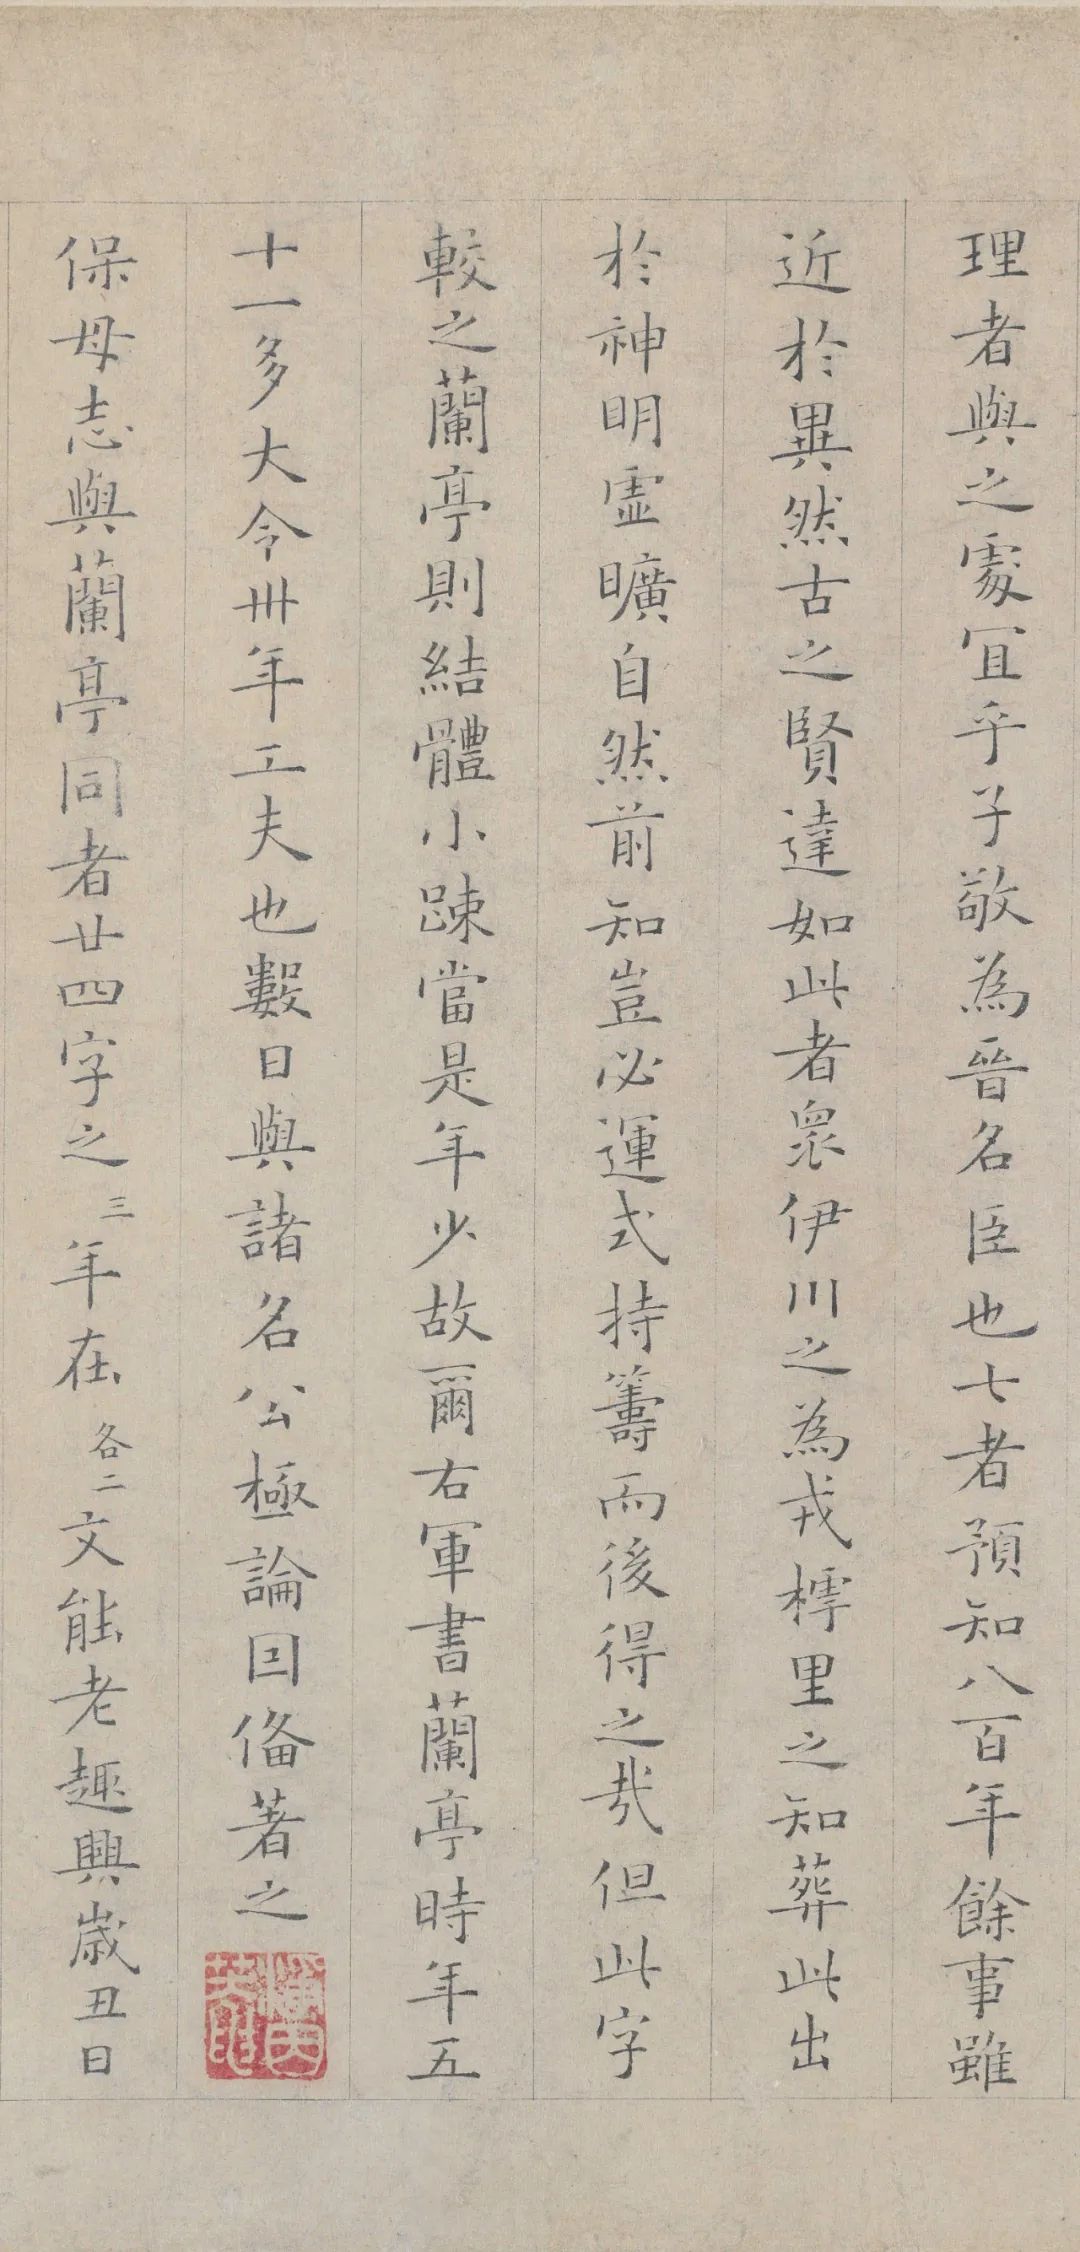 理者與之處宜乎子敬為晉名臣也七者預知八百年餘事雖
近於異然古之賢達如此者衆伊川之為戎樗里之知葬此出
於神明虛曠自然前知豈必運式持籌而後得之哉但此字
較之蘭亭則結體小疎當是年少故爾右軍書蘭亭時年五
十一多大令卅年工夫也數日與諸名公極論因俻著之
保母志與蘭亭同者廿四字之三年在各二文能老趣興歲丑日